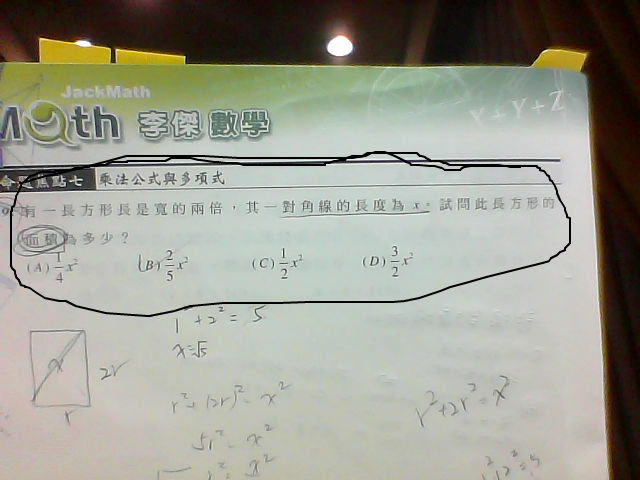 JackMath
Math 李傑數學
X+Y+Z
命題焦點七 乘法公式與多項式
有一長方形長是寬的兩倍，其一對角線的長度為 x。試問此長方形的
面積為多少？
(A) 1/4 x² (B) 2/5 x² (C) 1/2 x² (D) 3/2 x²
1²+2²=5
x=√5
x 2r
r
r²+(2r)²=x²
r²+2r²=x²
5r²=x²